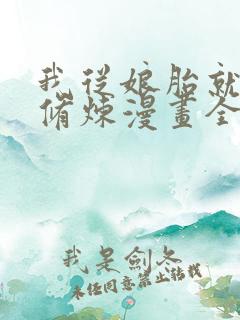 我從娘胎就
脩煉漫畫全
我是劍冬
未任同意禁止轉載